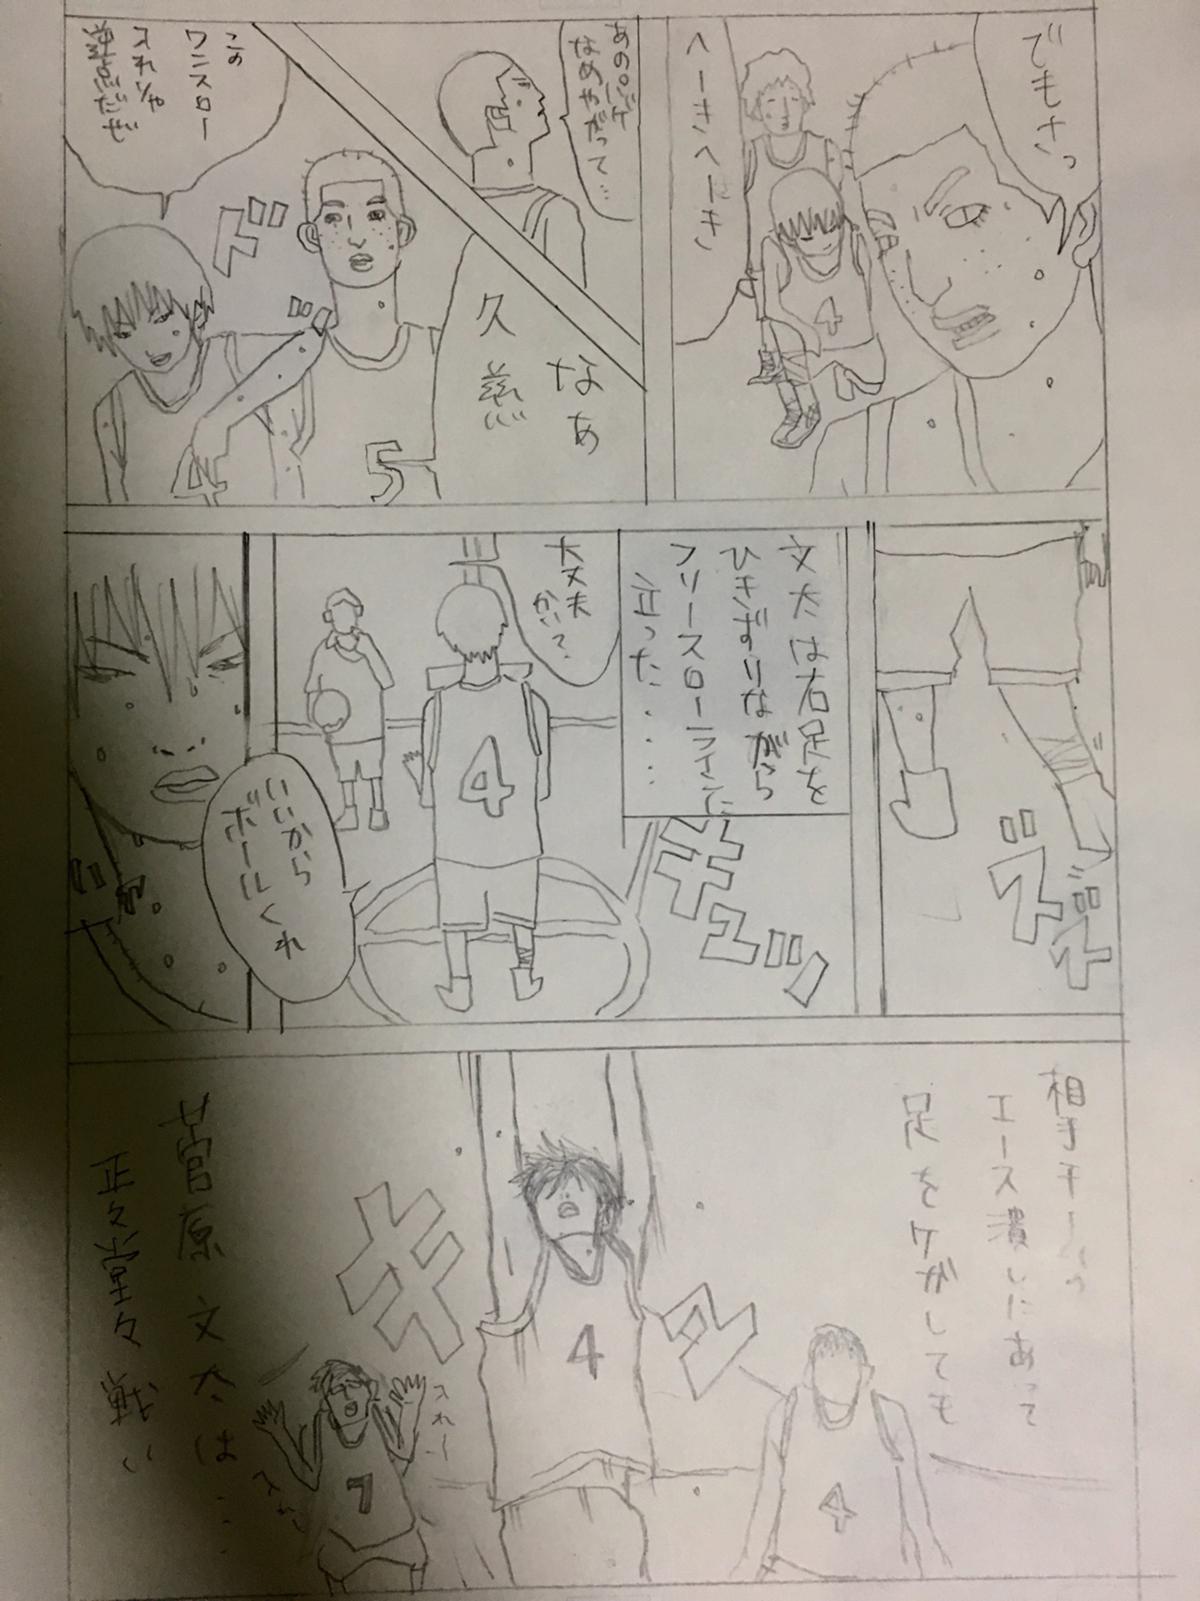 でもさっ
へーきへーき
あのハゲ
なめやがって…
なぁ
久慈
ドッ
この
ワンスロー
入れりゃ
逆点だぜ
ズッ
ズイ
文太は右足を
ひきずりながら
フリースローラインに
立った・・・・
キュッ
大丈夫
かい?
いいから
ボールくれ
相手チームの
エース潰しにあって
足をケガしても
菅原文太は…
正々堂々戦い
キュ
入れー